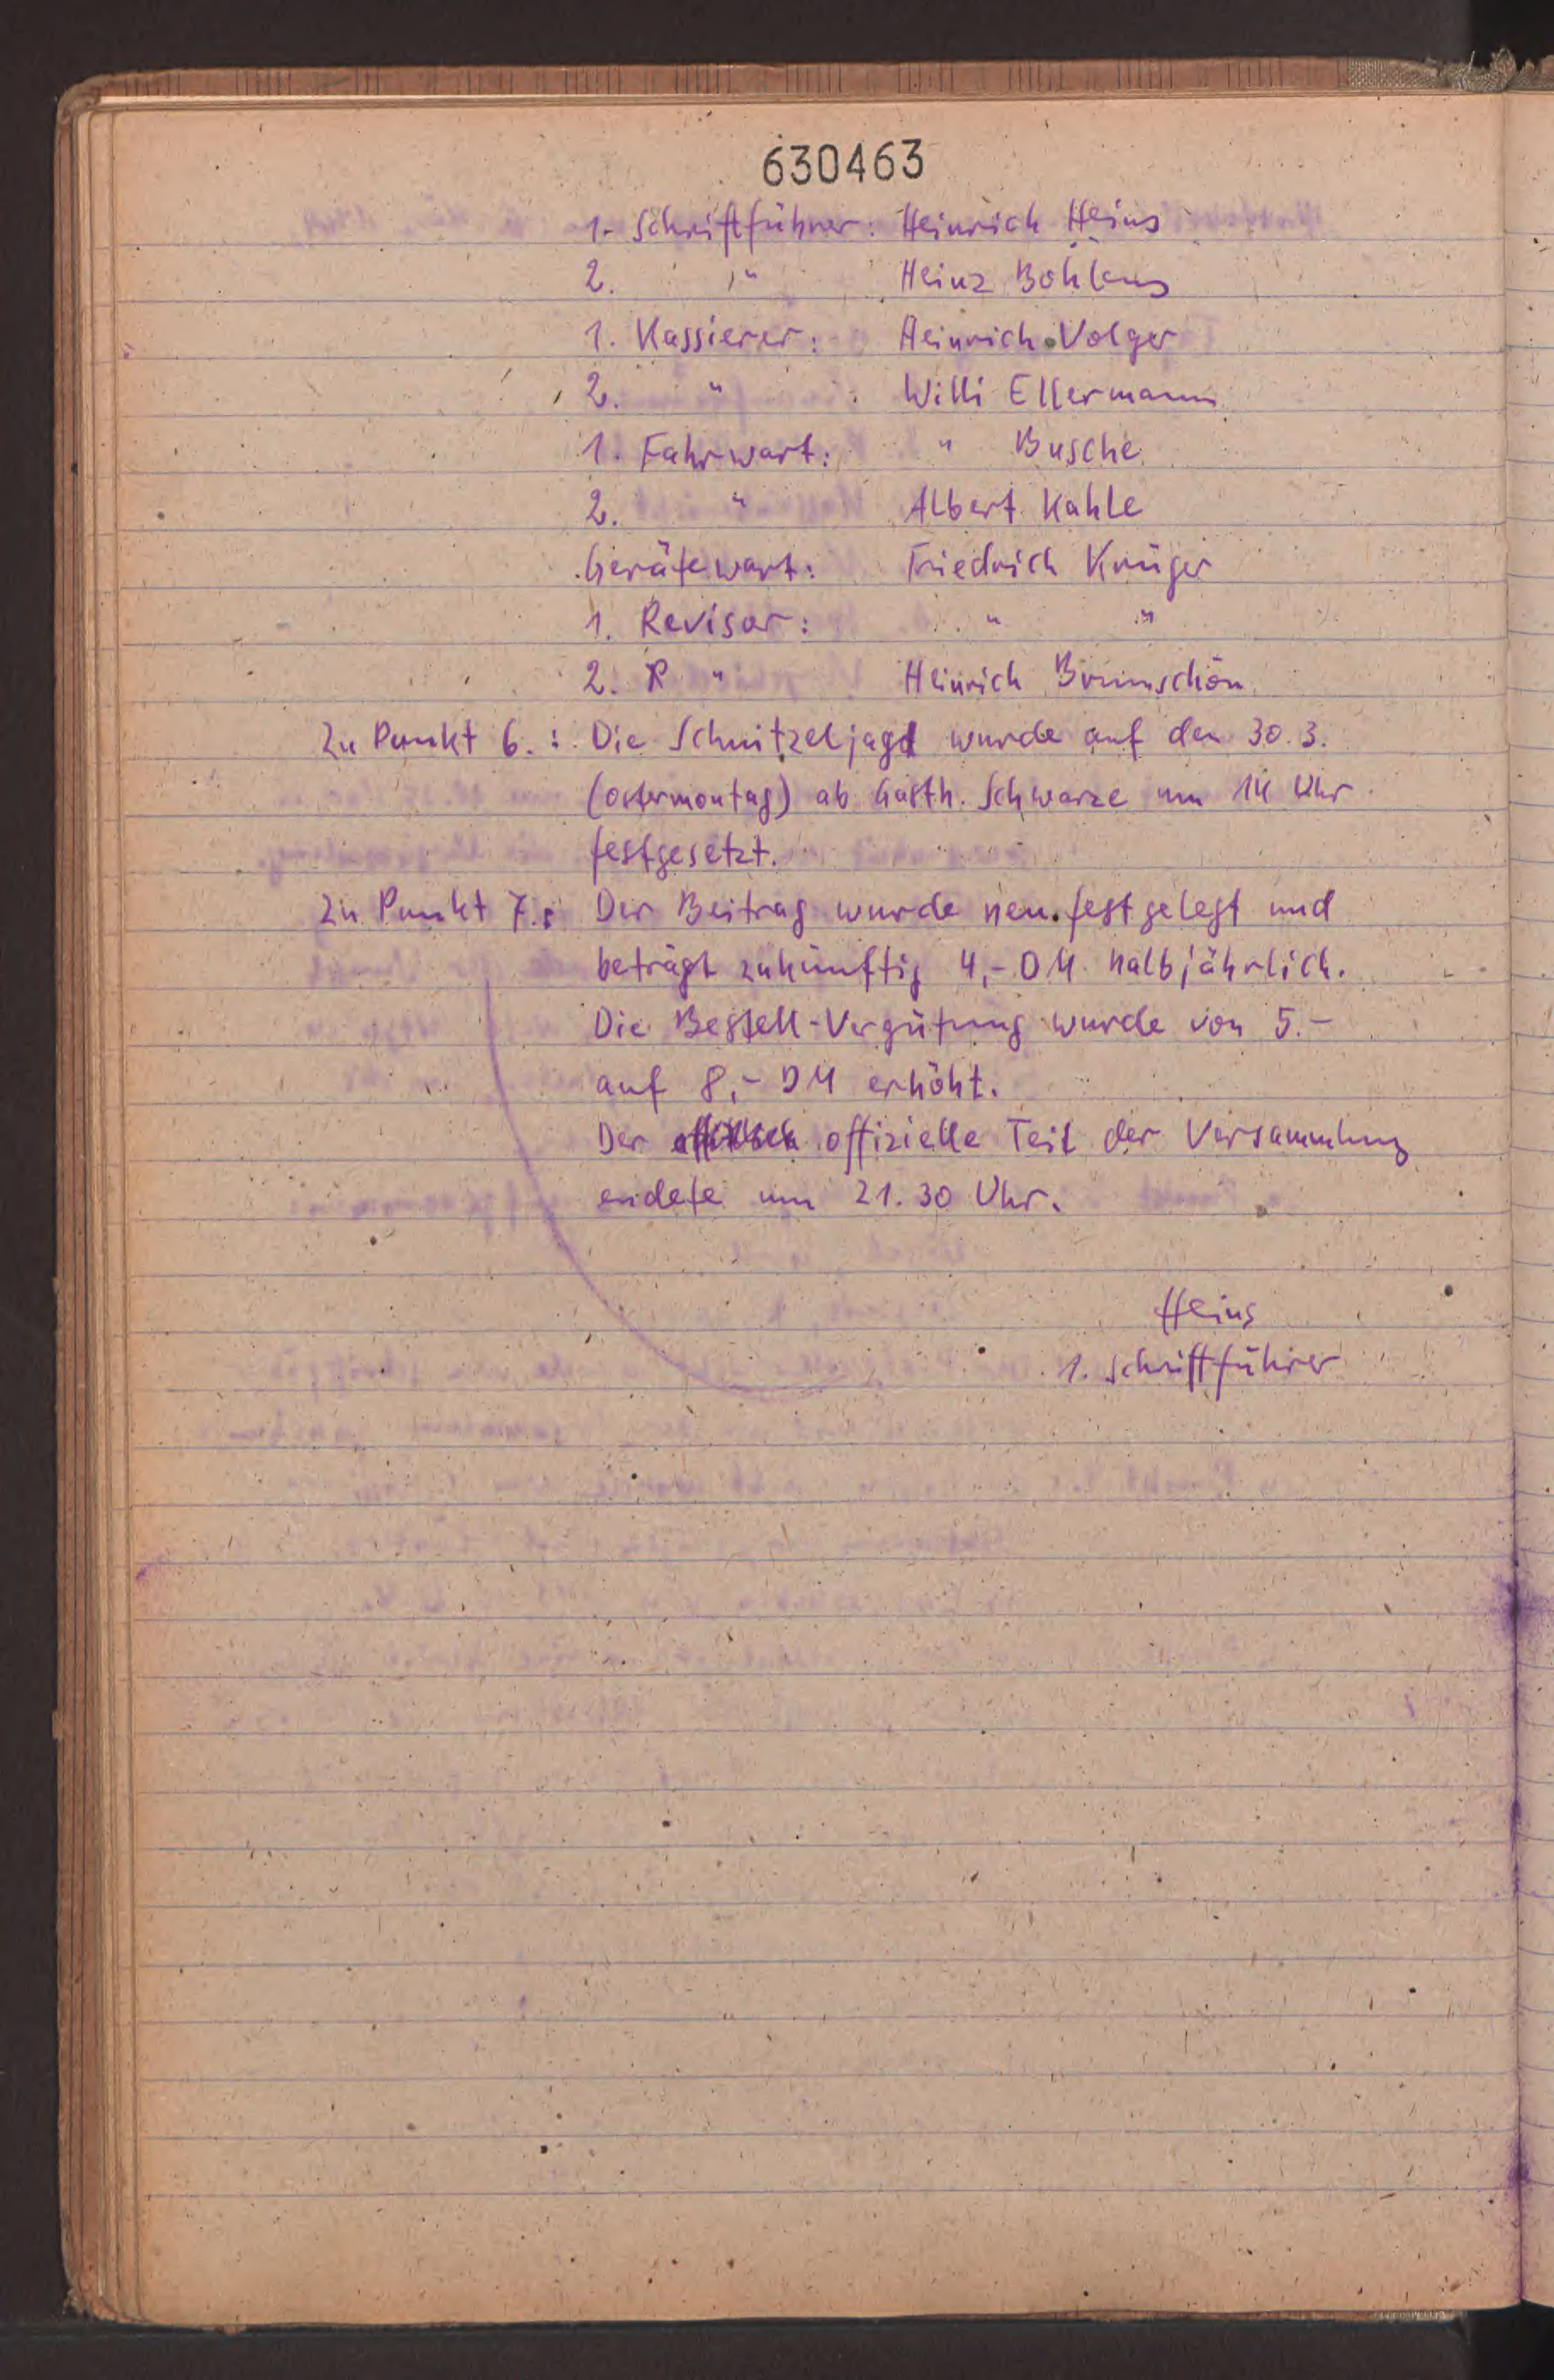 630463
1. Schriftführer: Heinrich Heins
2. " Heinz Bohlens
1. Kassierer: Heinrich Volger
2. " Willi Ellermann
1. Fahrwart: " Busche
2. " Albert Kahle
Gerätewart: Friedrich Krüger
1. Revisor: " "
2. R " Heinrich
Zu Punkt 6.: Die Schnitzeljagd wurde auf den 30.3.
(Ostermontag) ab Gasth. Schwarze um 14 Uhr
festgesetzt.
Zu Punkt 7.: Der Beitrag wurde neu festgelegt und
beträgt zukünftig 4,- DM halbjährlich.
Die Bestell-Vergütung wurde von 5.-
auf 8,- DM erhöht.
Der offizielle Teil der Versammlung
endete um 21.30 Uhr.
Heins
1. Schriftführer